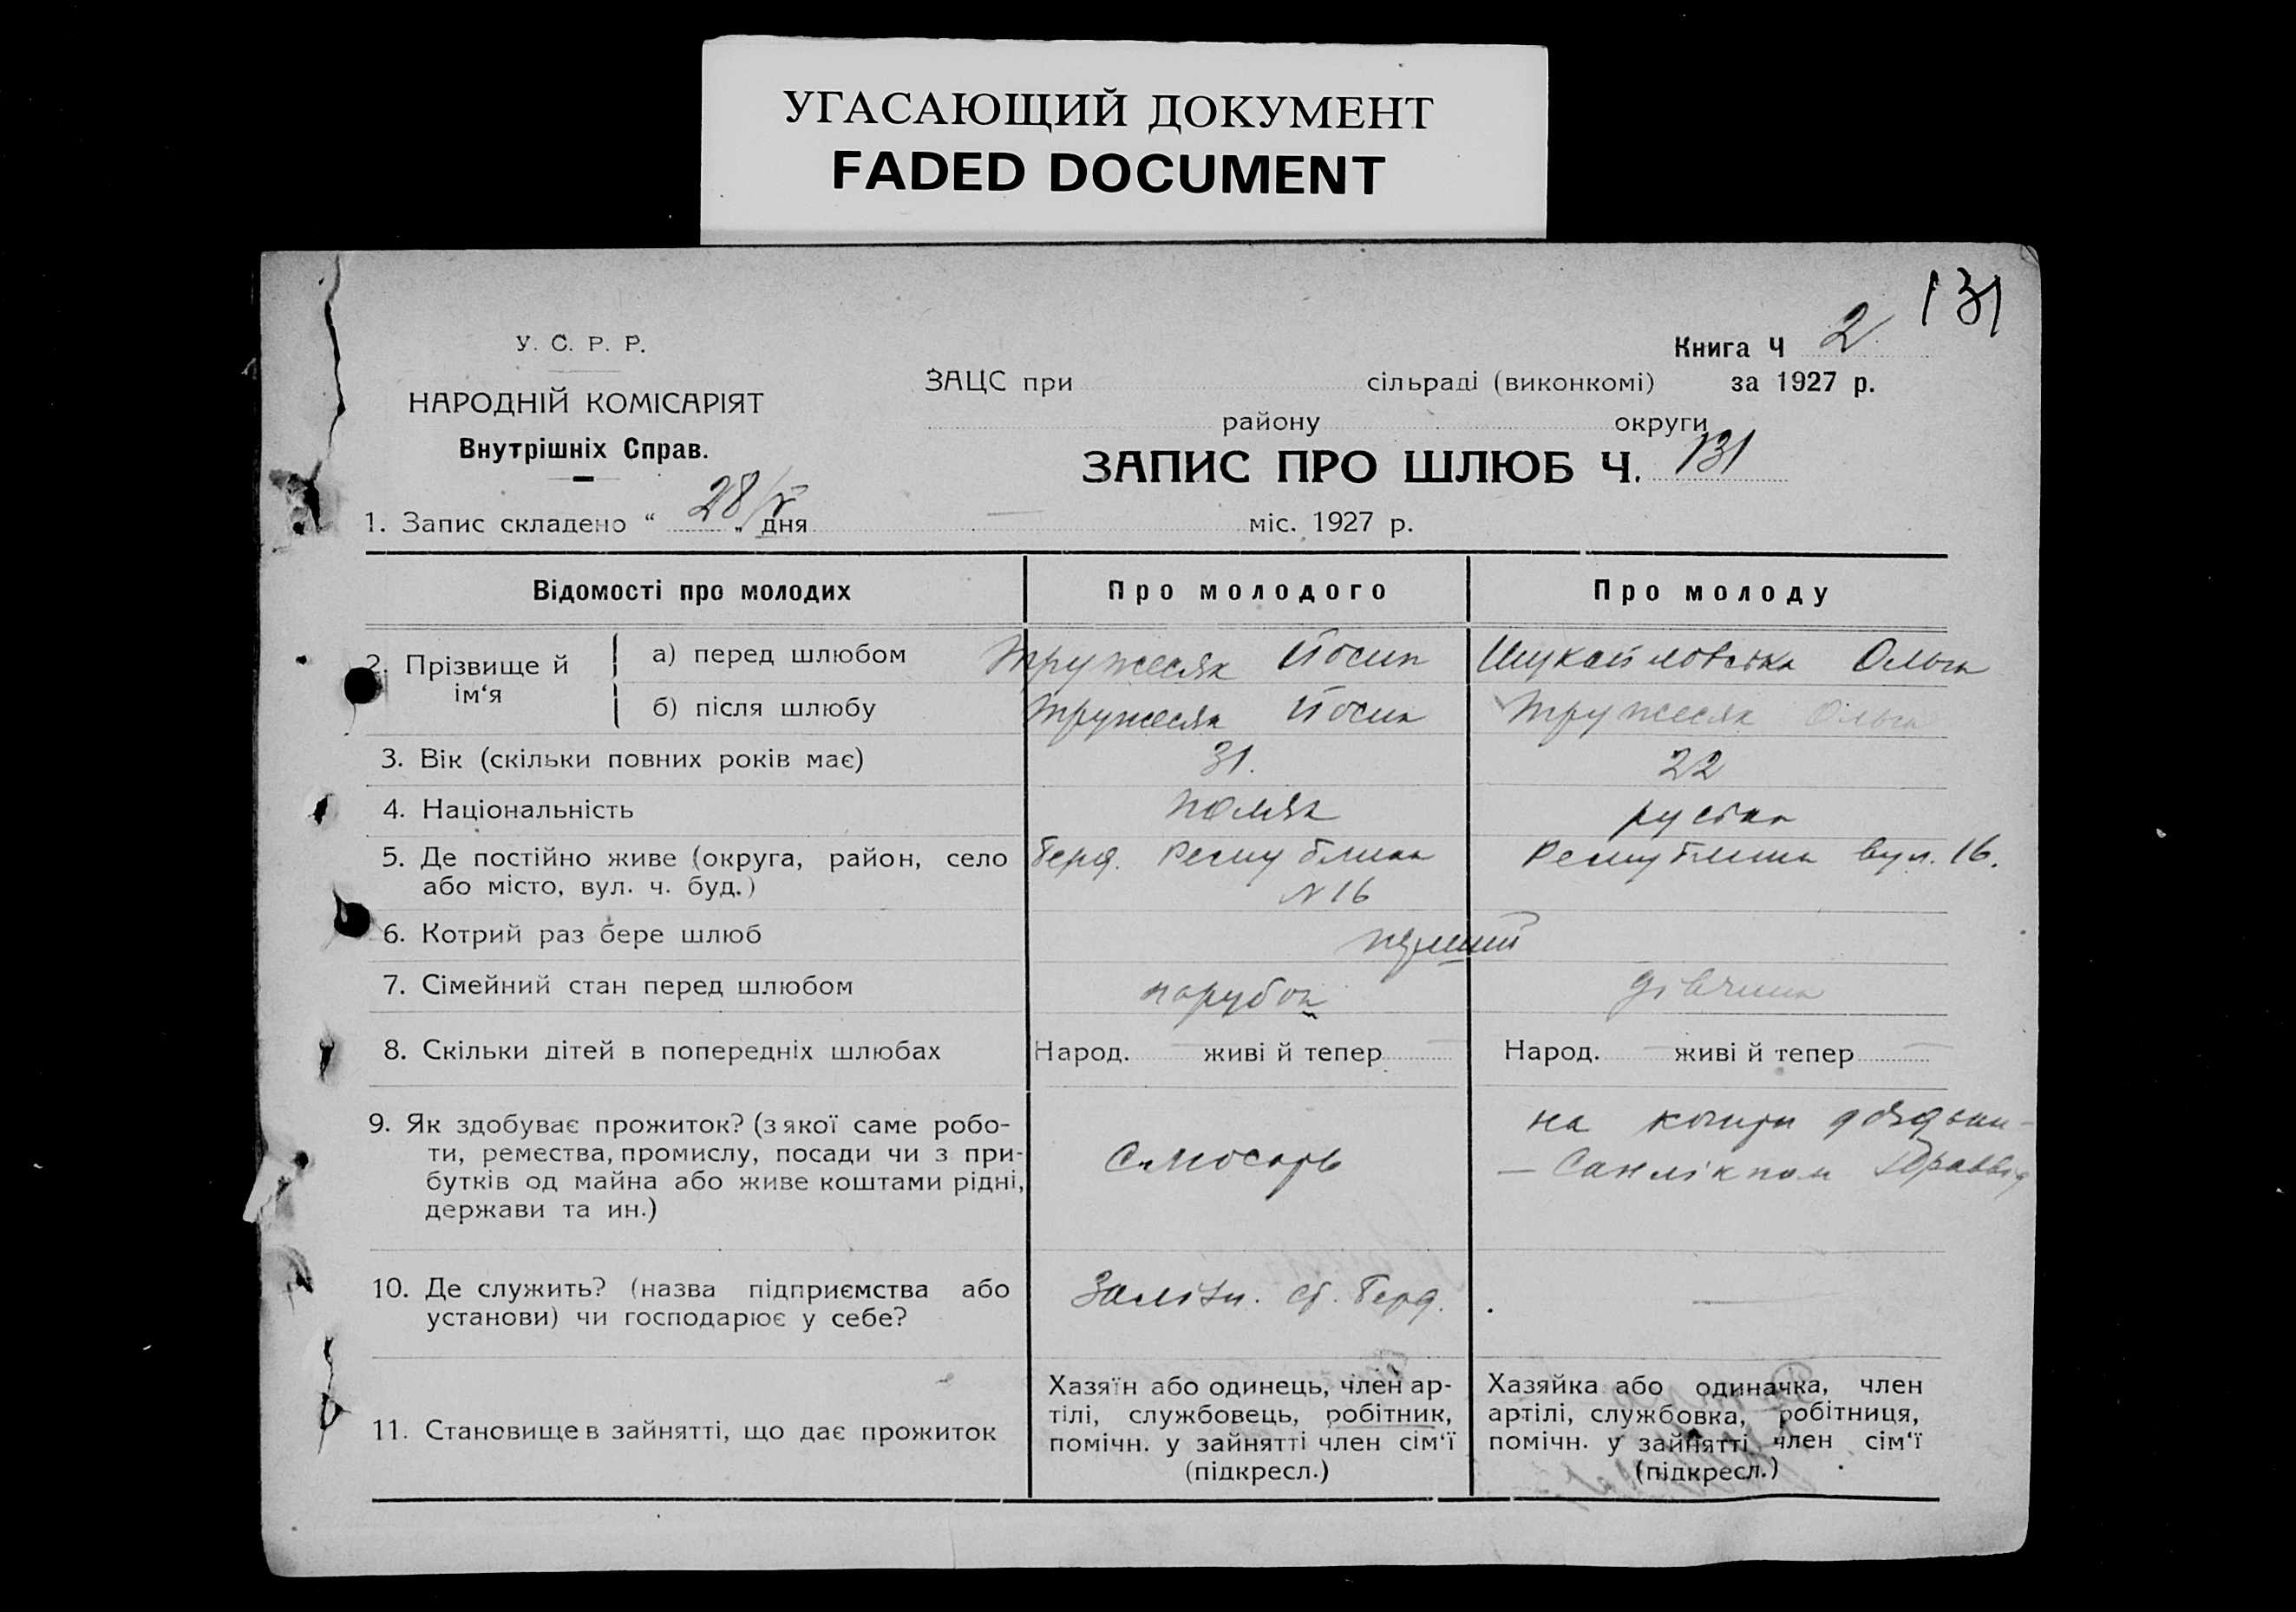 УГАСАЮЩИЙ ДОКУМЕНТ
FADED DOCUMENT
131
У. С. Р. Р.
НАРОДНІЙ КОМІСАРІЯТ
Внутрішніх Справ.
Книга Ч 2
ЗАЦС при сільраді (виконкомі) за 1927 р.
району округи
ЗАПИС ПРО ШЛЮБ Ч. 131
1. Запис складено “ 28/V „ дня міс. 1927 р.
Відомості про молодих Про молодого Про молоду
2. Прізвище й ім‘я
а) перед шлюбом Йосип Ольга
б) після шлюбу Йосип Ольга
3. Вік (скільки повних років має) 31. 22
4. Національність поляк руська
5. Де постійно живе (округа, район, село або місто, вул. ч. буд.)
Берд. Республики
N 16
Республики вул. 16.
6. Котрий раз бере шлюб перший
7. Сімейний стан перед шлюбом парубок дівчина
8. Скільки дітей в попередніх шлюбах Народ. — живі й тепер — Народ. — живі й тепер —
9. Як здобуває прожиток? (з якої саме робо-
ти, ремества, промислу, посади чи з при-
бутків од майна або живе коштами рідні,
держави та ин.)
Слюсарь
на кошти
10. Де служить? (назва підприємства або
установи) чи господарює у себе?
Залізн. ст. Берд. —
11. Становище в зайнятті, що дає прожиток
Хазяїн або одинець, член ар-
тілі, службовець, робітник,
помічн. у зайнятті член сім‘ї
(підкресл.)
Хазяйка або одиначка, член
артілі, службовка, робітниця,
помічн. у зайнятті член сім‘ї
(підкресл.)